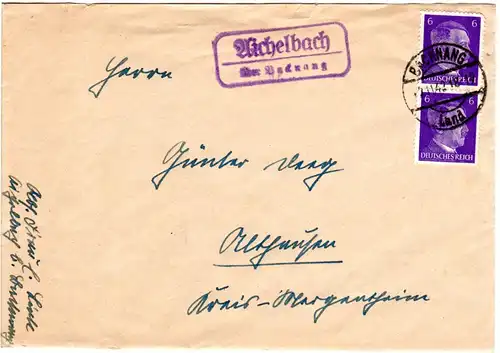 Aichelbach
über Backnang
6 6
DEUTSCHES REICH
BACKNANG
Land
6 6
DEUTSCHES REICH
Herrn
Günter
Althausen
Kreis-Mergentheim
Abs. Frau L.
Aichelbach b. Backnang